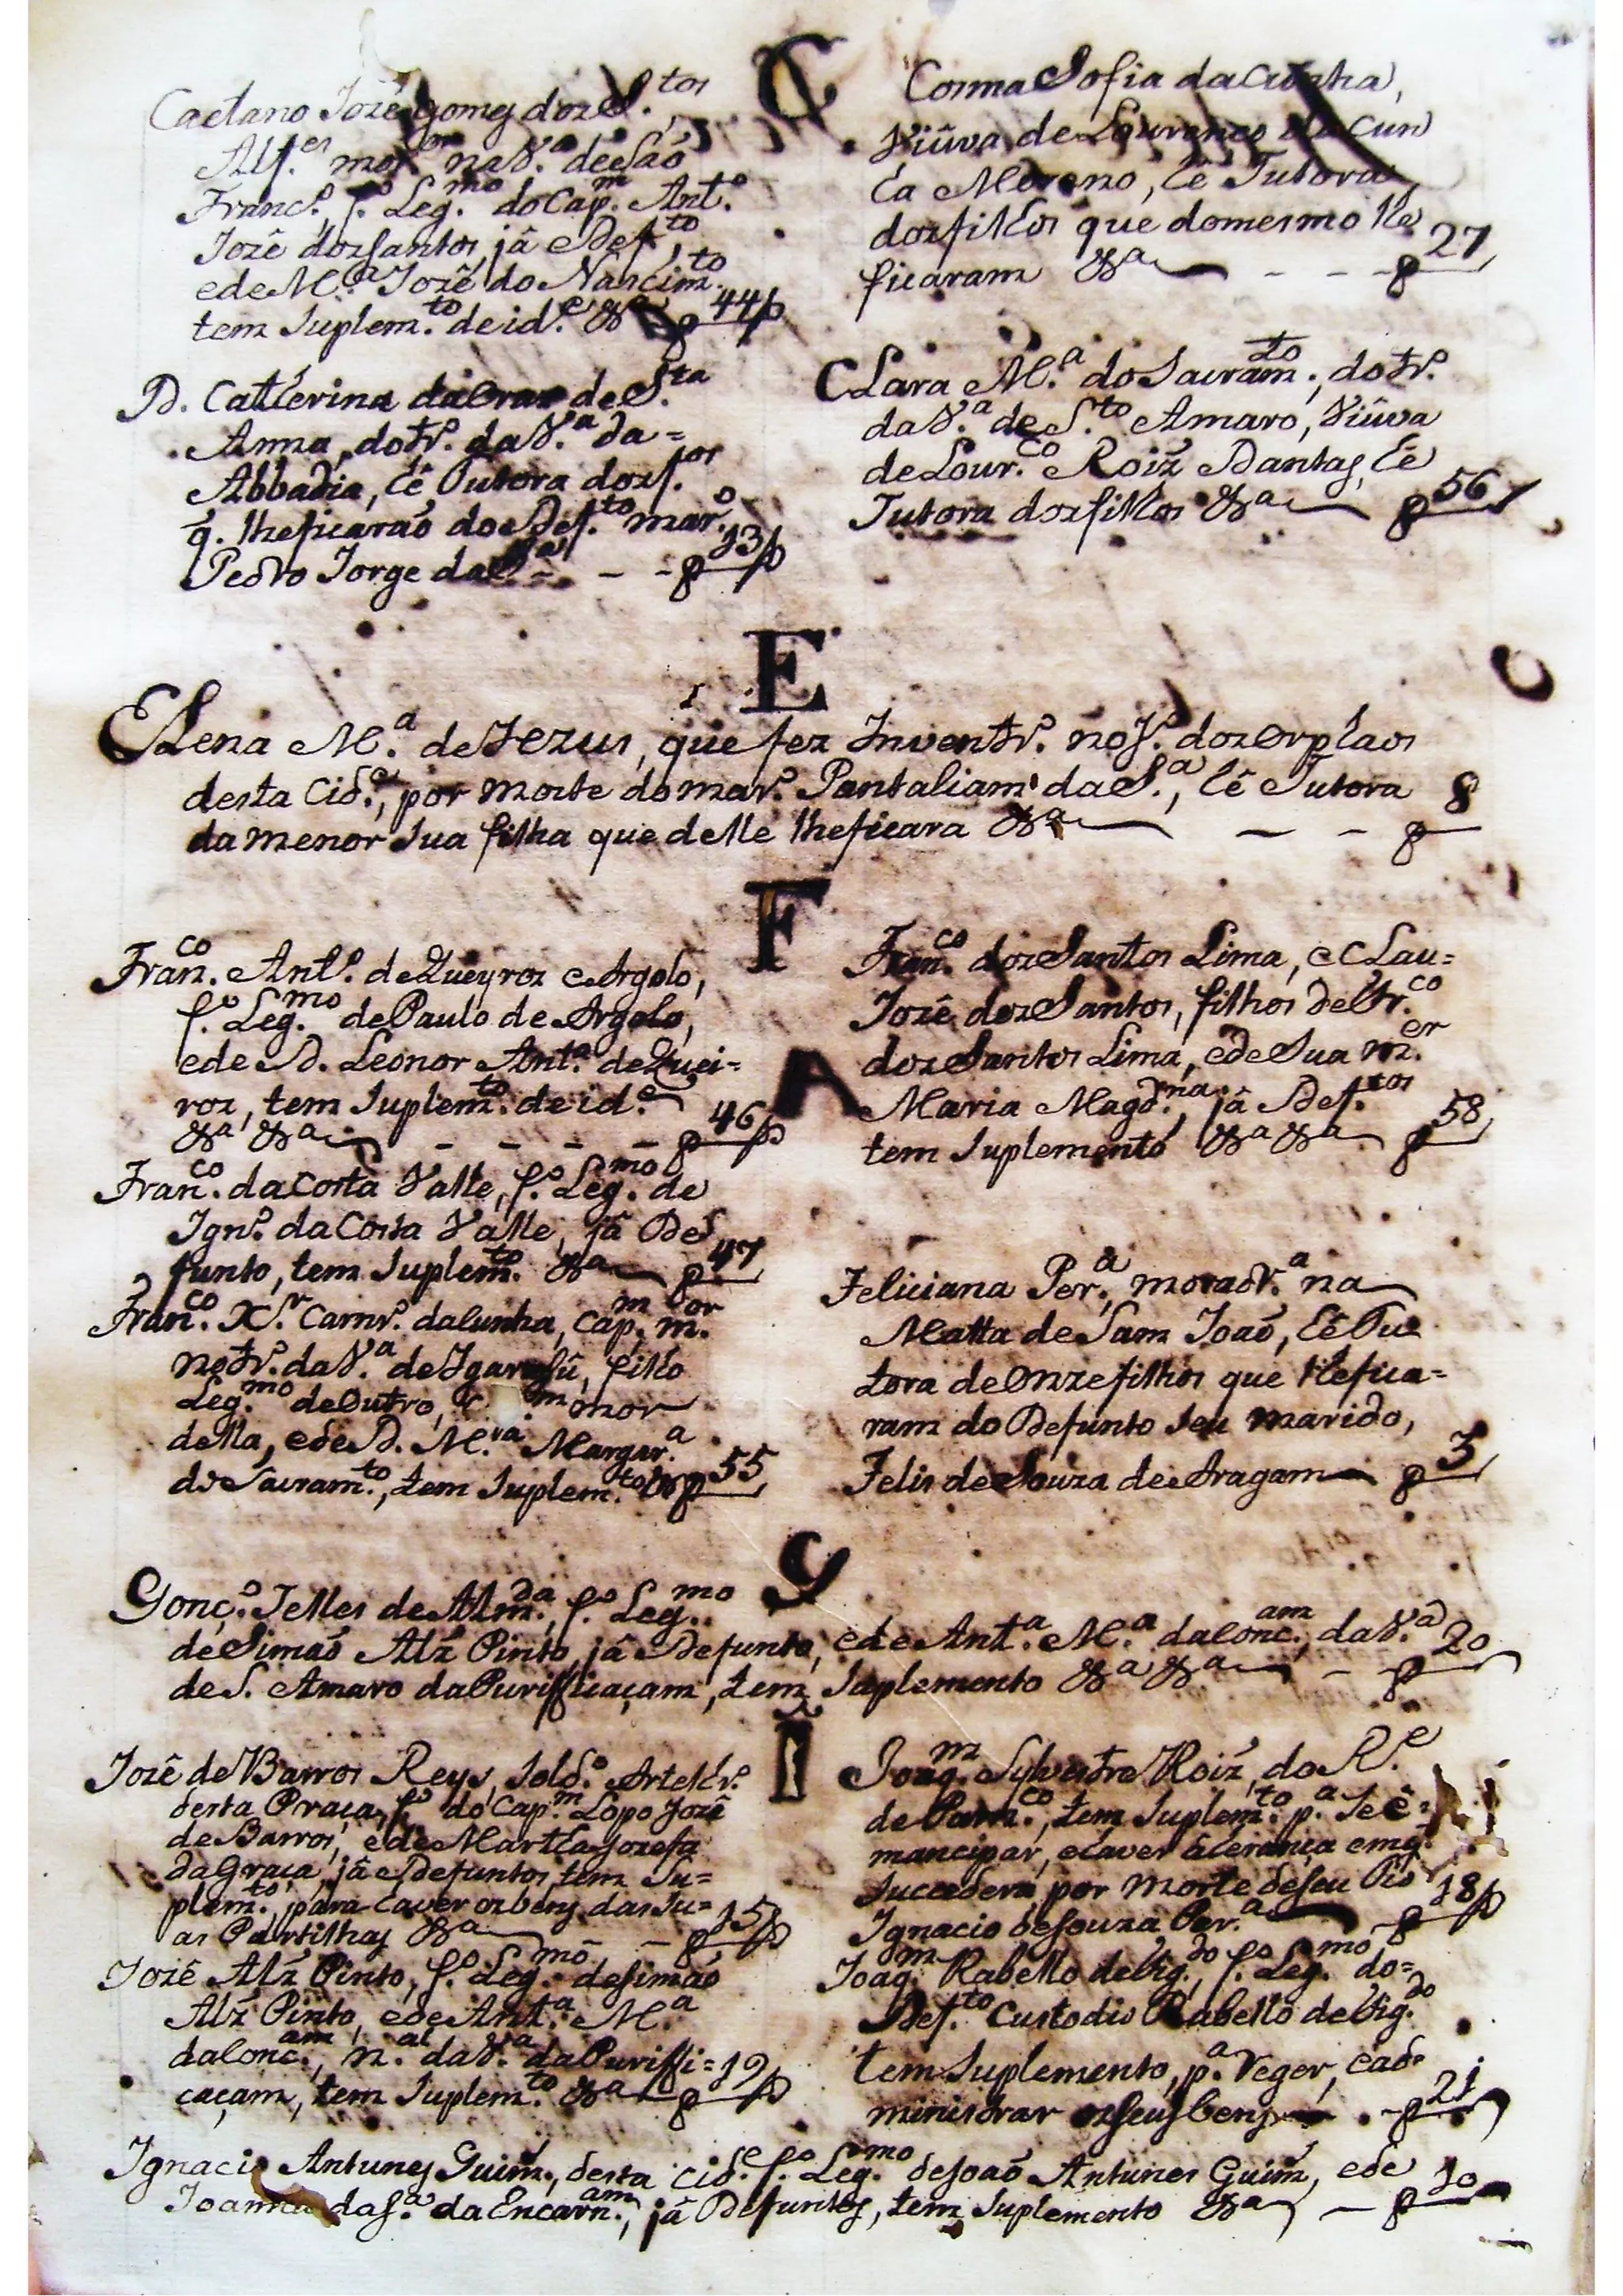 C
Caetano Jozê gomes dos S.tos,
Alf.es mor.or na V.a de Saõ
Franc.º, f.º Leg.mo do Cap.m Ant.º
Jozê dos Santos, jâ Def.to,
e de M.a Jozê do Nascim.to
tem Suplem.to de id.e &a 44
D. Catherina da Crus de S.ta
Anna, do tr.º da V.a da=
Abbadia, hê Tutora dos f.os
q. lhe ficaraõ do Def.to mar.º
Pedro Jorge da S.a - - - 13
Cosma Sofia da Cunha,
Viûva de Lourenço da Cun
ha Moreno, hê Tutora
dos filhos que do mesmo lhe
ficaram &a - - - 27
Clara M.a do Sacram.to, do tr.º
da V.a de S.to Amaro, Viûva
de Lour.co Roiz Dantas, hê
Tutora dos filhos &a 56
E
Elena M.a de Jezus, que fez Inventr.º no J.º dos Orphaos
desta Cid.e, por morte do mar.º Pantaliam da S.a, hê Tutora
da menor sua filha que delle lhe ficara &a - - 8
F
Fran.co Ant.º de Queyros e Argolo,
f.º Leg.mo de Paulo de Argolo,
e de D. Leonor Ant.a de Quei=
ros, tem Suplem.to de id.e
&a &a - - - - 46
Fran.co da Costa Valle, f.º Leg.mo de
Ign.º da Costa Valle, jâ De
funto, tem Suplem.to &a 47
Fran.co X.er Carnr.º da Cunha, Cap.m m.or
no tr.º da V.a de Igarasû, filho
Leg.mo de Outro, m mor
della, e de D. M.ra Margar.a
do Sacram.to, tem Suplem.to & 55
Fran.co dos Santos Lima, e Clau=
A
Jozê dos Santos, filhos de Fr.co
dos Santos Lima, e de Sua m.er
Maria Magd.na, jâ Def.tos
tem Suplemento &a &a 58
Feliciana Per.a, moradr.a na
Matta de Sam Joaõ, hê Tu
tora de Onze filhos que lhe fica=
ram do Defunto seu marido,
Felis de Souza de Aragam 3
G
Gonç.º Telles de Alm.da, f.º Leg.mo
de Simaõ Alz Pinto, jâ Defunto, e de Ant.a M.a da Conc.am, da V.a 20
de S. Amaro da Purifficaçam, tem Suplemento &a &a -
I
Jozê de Barros Reys, Sold.º Artelhr.º
desta Praça, f.º do Cap.m Lopo Jozê
de Barros, e de Martha Jozefa
da Graça, jâ Defuntos, tem Su=
plem.to, para haver os bens das su=
as Partilhas &a - - 15
Jozê Alz Pinto, f.º Leg.mo de Simaõ
Alz Pinto, e de Ant.a M.a
da Conc.am, n.al da V.a da Puriffi=
caçam, tem Suplem.to &a 19
Joaq.m Sylvestre Roiz, do R.e
de Parn.co, tem Suplem.to p.a se ê=
mancipar, e haver â herança em q.
Succedera por morte de seu Tio
Ignacio de Souza Per.a 18
Joaq.m Rabello de Fig.do, f.º Leg.mo do=
Def.to Custodio Rabello de Fig.do
tem Suplemento, p.a reger, e ad=
ministrar os seus bens - 21
Ignacio Antunes Guim., desta Cid.e f.º Leg.mo de Joaõ Antunes Guim., e de
Joanna da S.a da Encarn.am, jâ Defuntos, tem Suplemento &a - 10